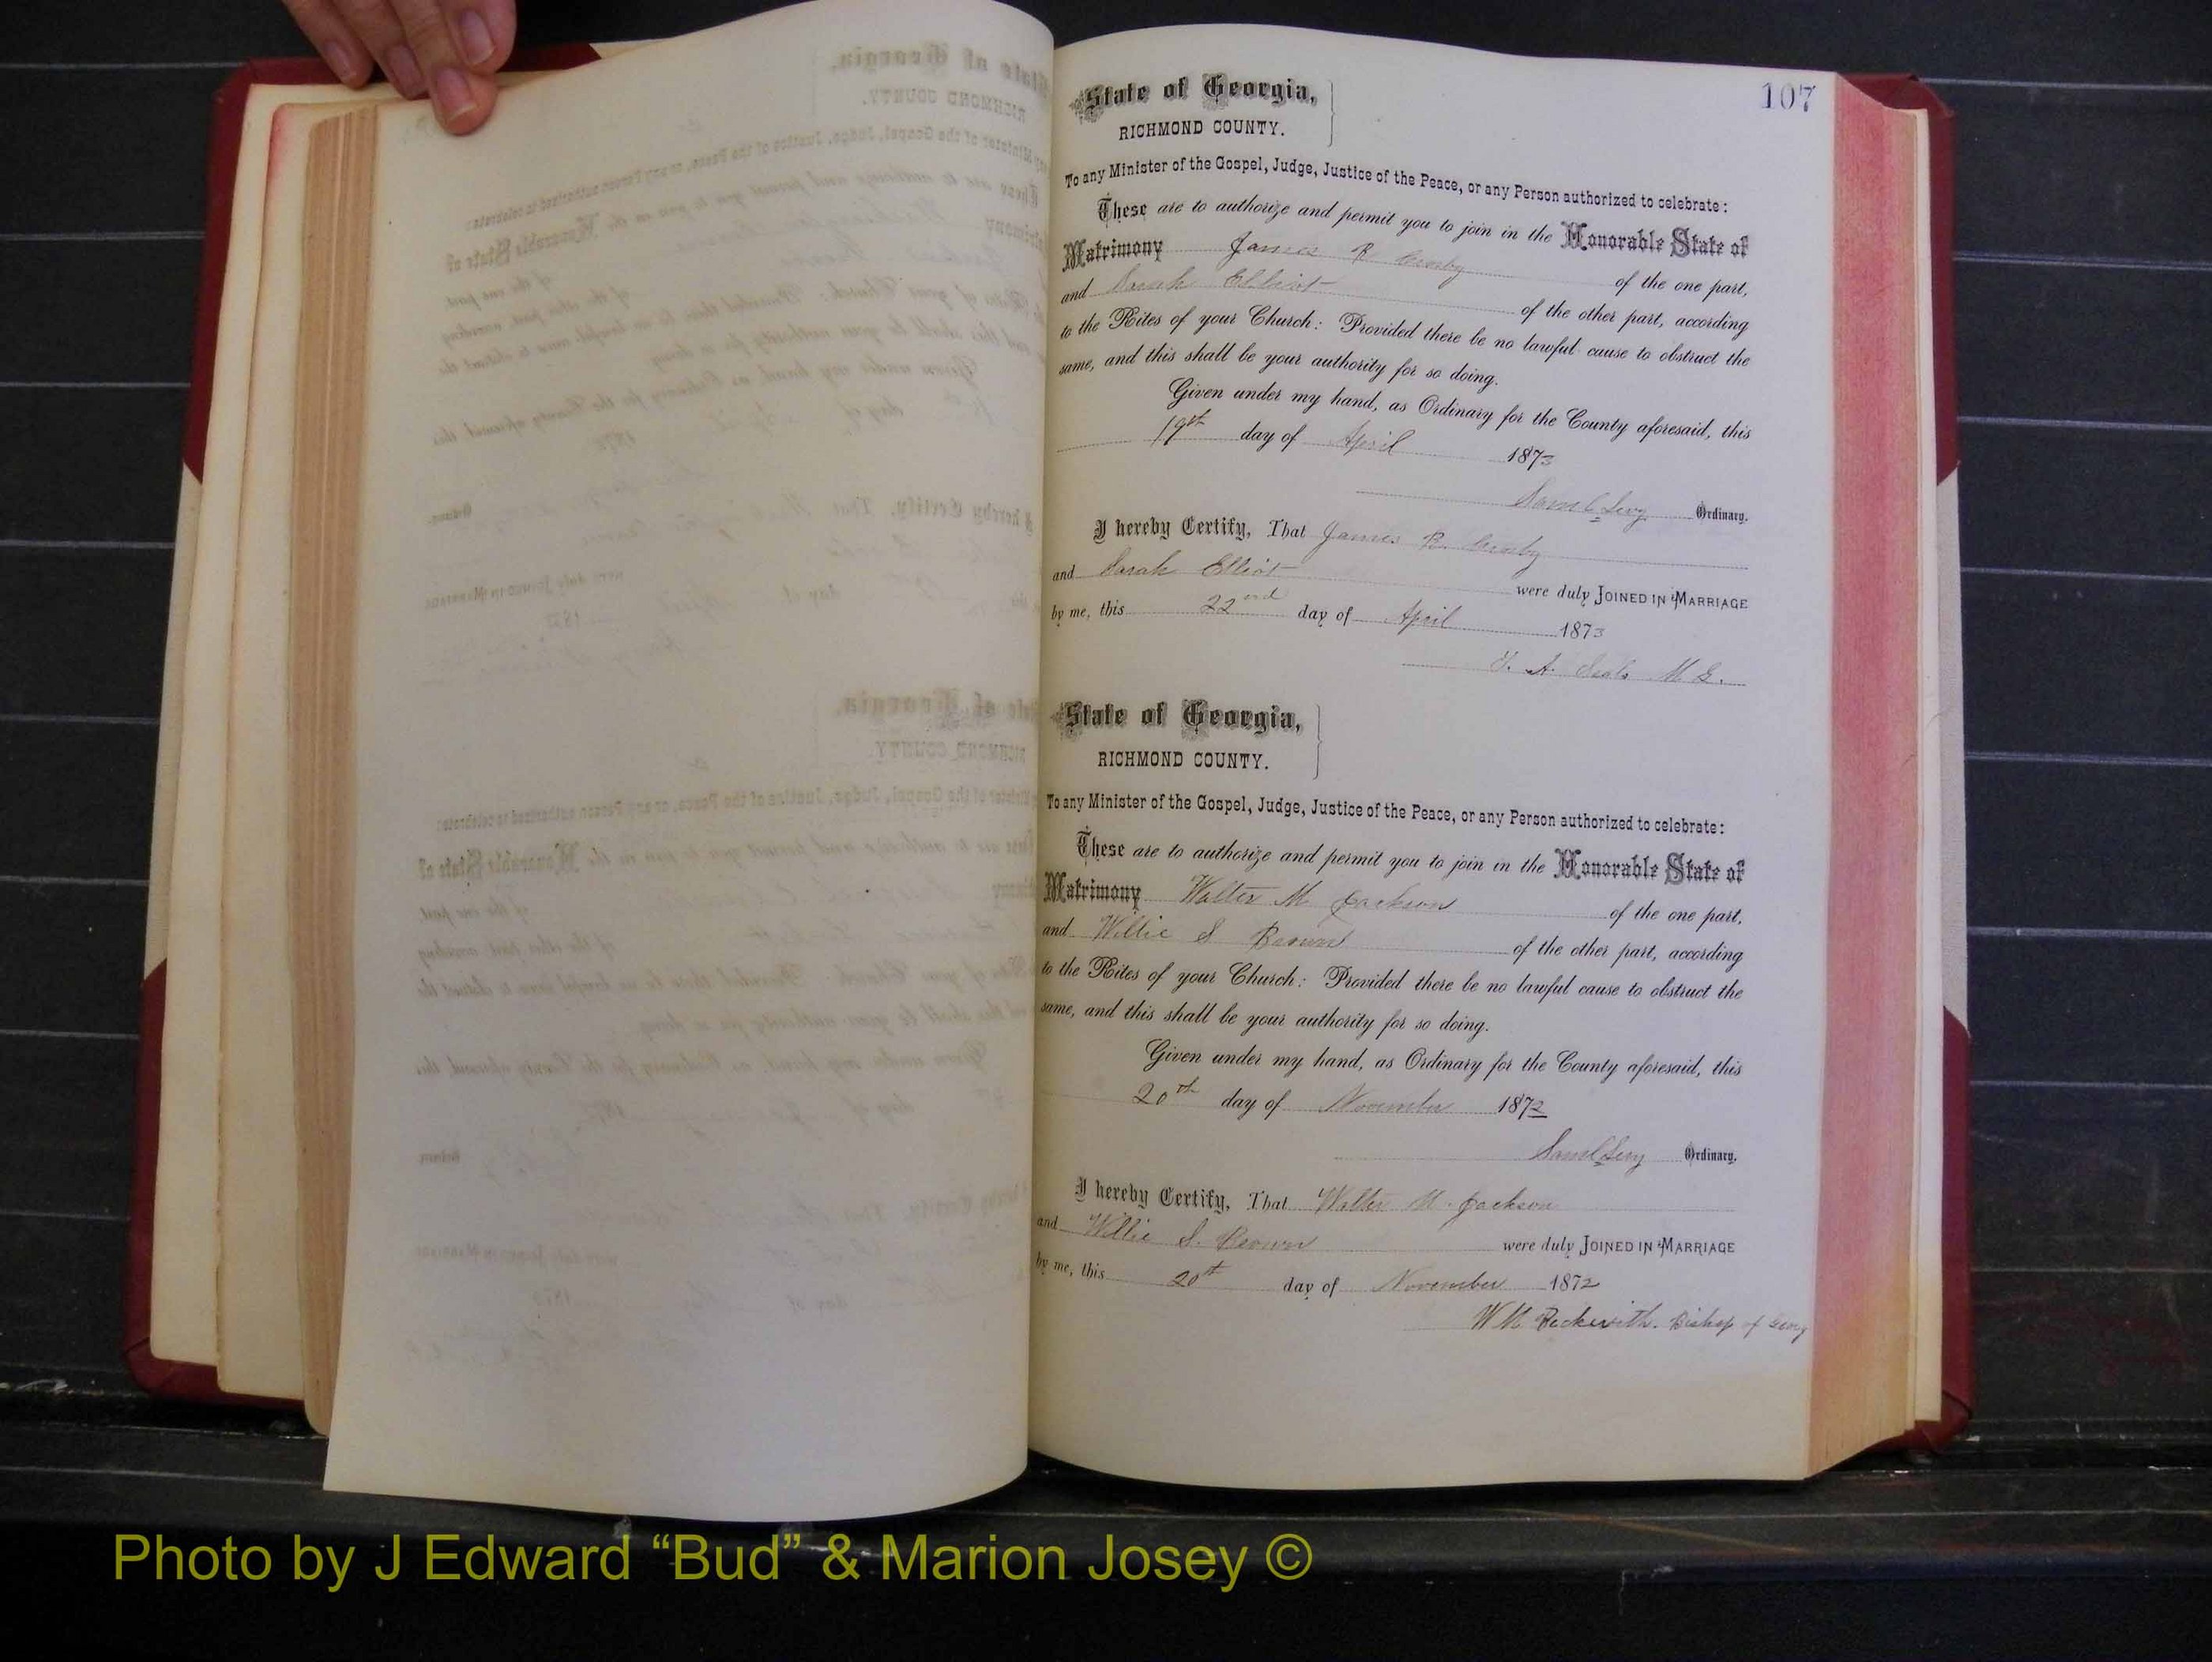 107
State of Georgia,
RICHMOND COUNTY.
To any Minister of the Gospel, Judge, Justice of the Peace, or any Person authorized to celebrate:
These are to authorize and permit you to join in the Honorable State of
Matrimony James R. Crosby of the one part,
and Sarah Elliot of the other part, according
to the Rites of your Church: Provided there be no lawful cause to obstruct the
same, and this shall be your authority for so doing.
Given under my hand, as Ordinary for the County aforesaid, this
19th day of April 1873
Saml Levy Ordinary.
I hereby Certify, That James R. Crosby
and Sarah Elliot were duly JOINED IN MARRIAGE
by me, this 22nd day of April 1873
A. Seals M. G.
State of Georgia,
RICHMOND COUNTY.
To any Minister of the Gospel, Judge, Justice of the Peace, or any Person authorized to celebrate:
These are to authorize and permit you to join in the Honorable State of
Matrimony Walter M Jackson of the one part,
and Willie S Brown of the other part, according
to the Rites of your Church: Provided there be no lawful cause to obstruct the
same, and this shall be your authority for so doing.
Given under my hand, as Ordinary for the County aforesaid, this
20th day of November 1872
Saml Levy Ordinary.
I hereby Certify, That Walter M. Jackson
and Willie S. Brown were duly JOINED IN MARRIAGE
by me, this 20th day of November 1872
W M Beckwith. Bishop of Georg
Photo by J Edward “Bud” & Marion Josey ©